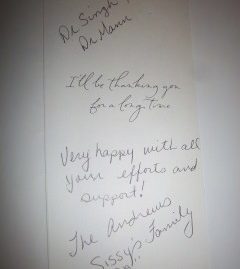 Dr Singh
Dr Mann
I'll be thanking you
for a long time
Very happy with all
your efforts and
support!
The Andrews
Sissy's Family